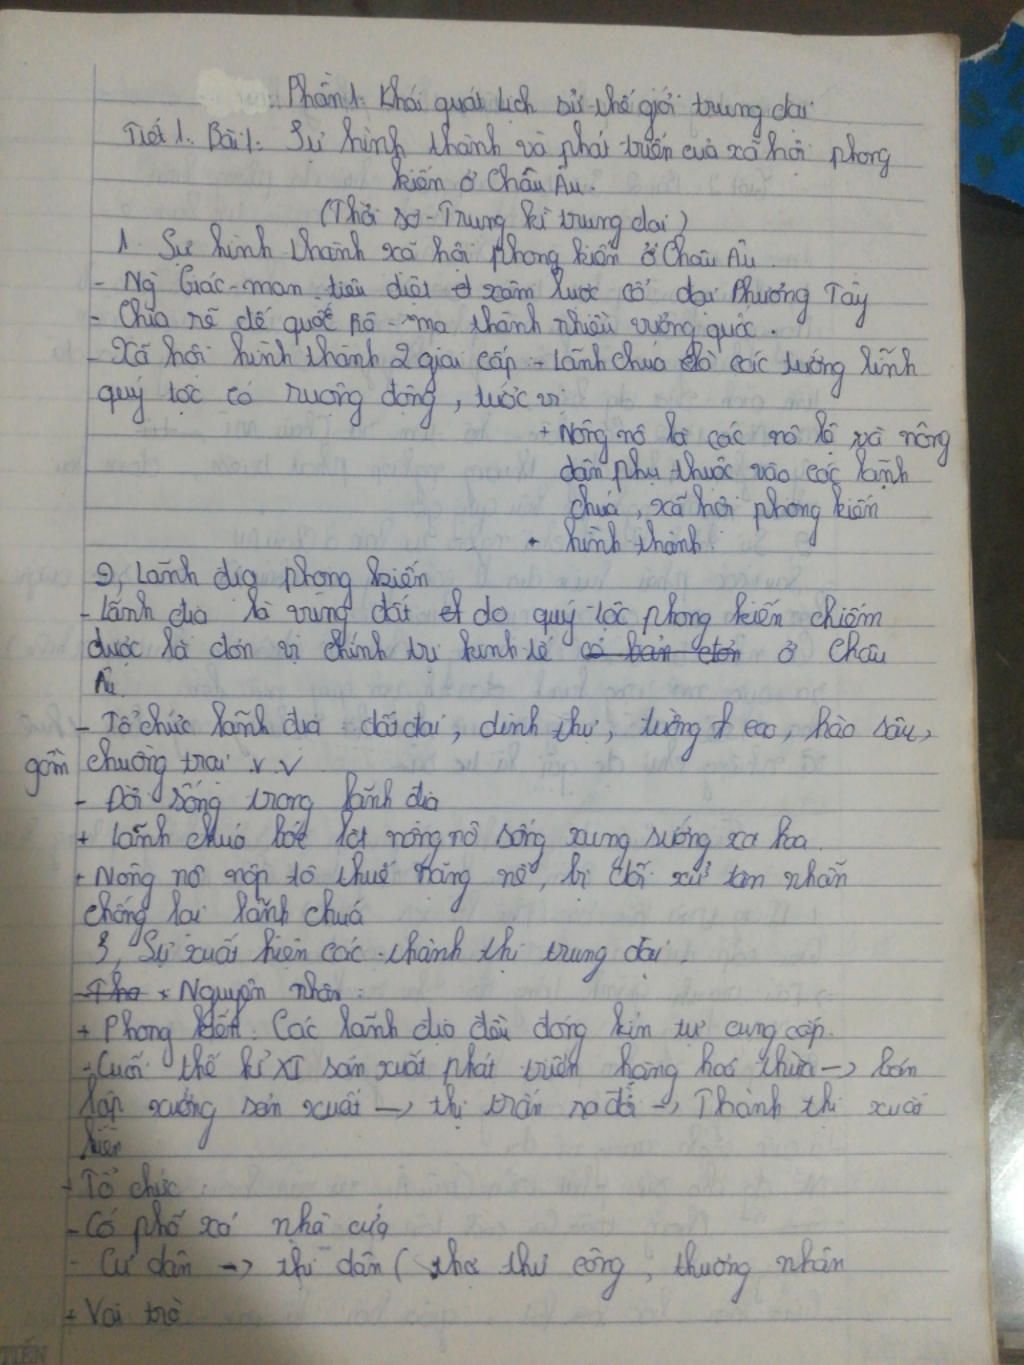 Phần 1. Khái quát Lịch sử thế giới trung đại
Tiết 1. Bài 1. Sự hình thành và phát triển của xã hội phong
kiến ở Châu Âu.
(Thời sơ - Trung kì trung đại)
1. Sự hình thành xã hội phong kiến ở Châu Âu.
- Ng Giác-man tiêu diệt xâm lược cổ đại Phương Tây
- Chia rẽ đế quốc Rô-ma thành nhiều vương quốc.
- Xã hội hình thành 2 giai cấp: + Lãnh chúa là các tướng lĩnh
quý tộc có ruộng đông, tước vị
+ Nông nô là các nô lệ và nông
dân phụ thuộc vào các lãnh
chúa, xã hội phong kiến
hình thành
2, Lãnh địa phong kiến
- Lãnh địa là vùng đất do quý tộc phong kiến chiếm
được là đơn vị chính trị kinh tế có bản ở Châu
Âu.
- Tổ chức lãnh địa: đất đai, dinh thự, tường cao, hào sâu,
gồm chuồng trai v.v
- Đời sống trong lãnh địa
+ Lãnh chúa bóc lột nông nô sống xung sướng xa hoa.
+ Nông nô nộp tô thuế nặng nề, bị đối xử tàn nhẫn
chống lại lãnh chúa
3, Sự xuất hiện các thành thị trung đại.
* Nguyên nhân:
+ Phong kiến: Các lãnh địa đều đóng kín tự cung cấp.
- Cuối thế kỉ XI sản xuất phát triển hàng hoá thừa -> bán
lập xưởng sản xuất -> thị trấn ra đời -> Thành thị xuất
hiện
+ Tổ chức:
- Có phố xá nhà cửa
- Cư dân -> thị dân ( thợ thủ công, thương nhân
+ Vai trò
TIẾN